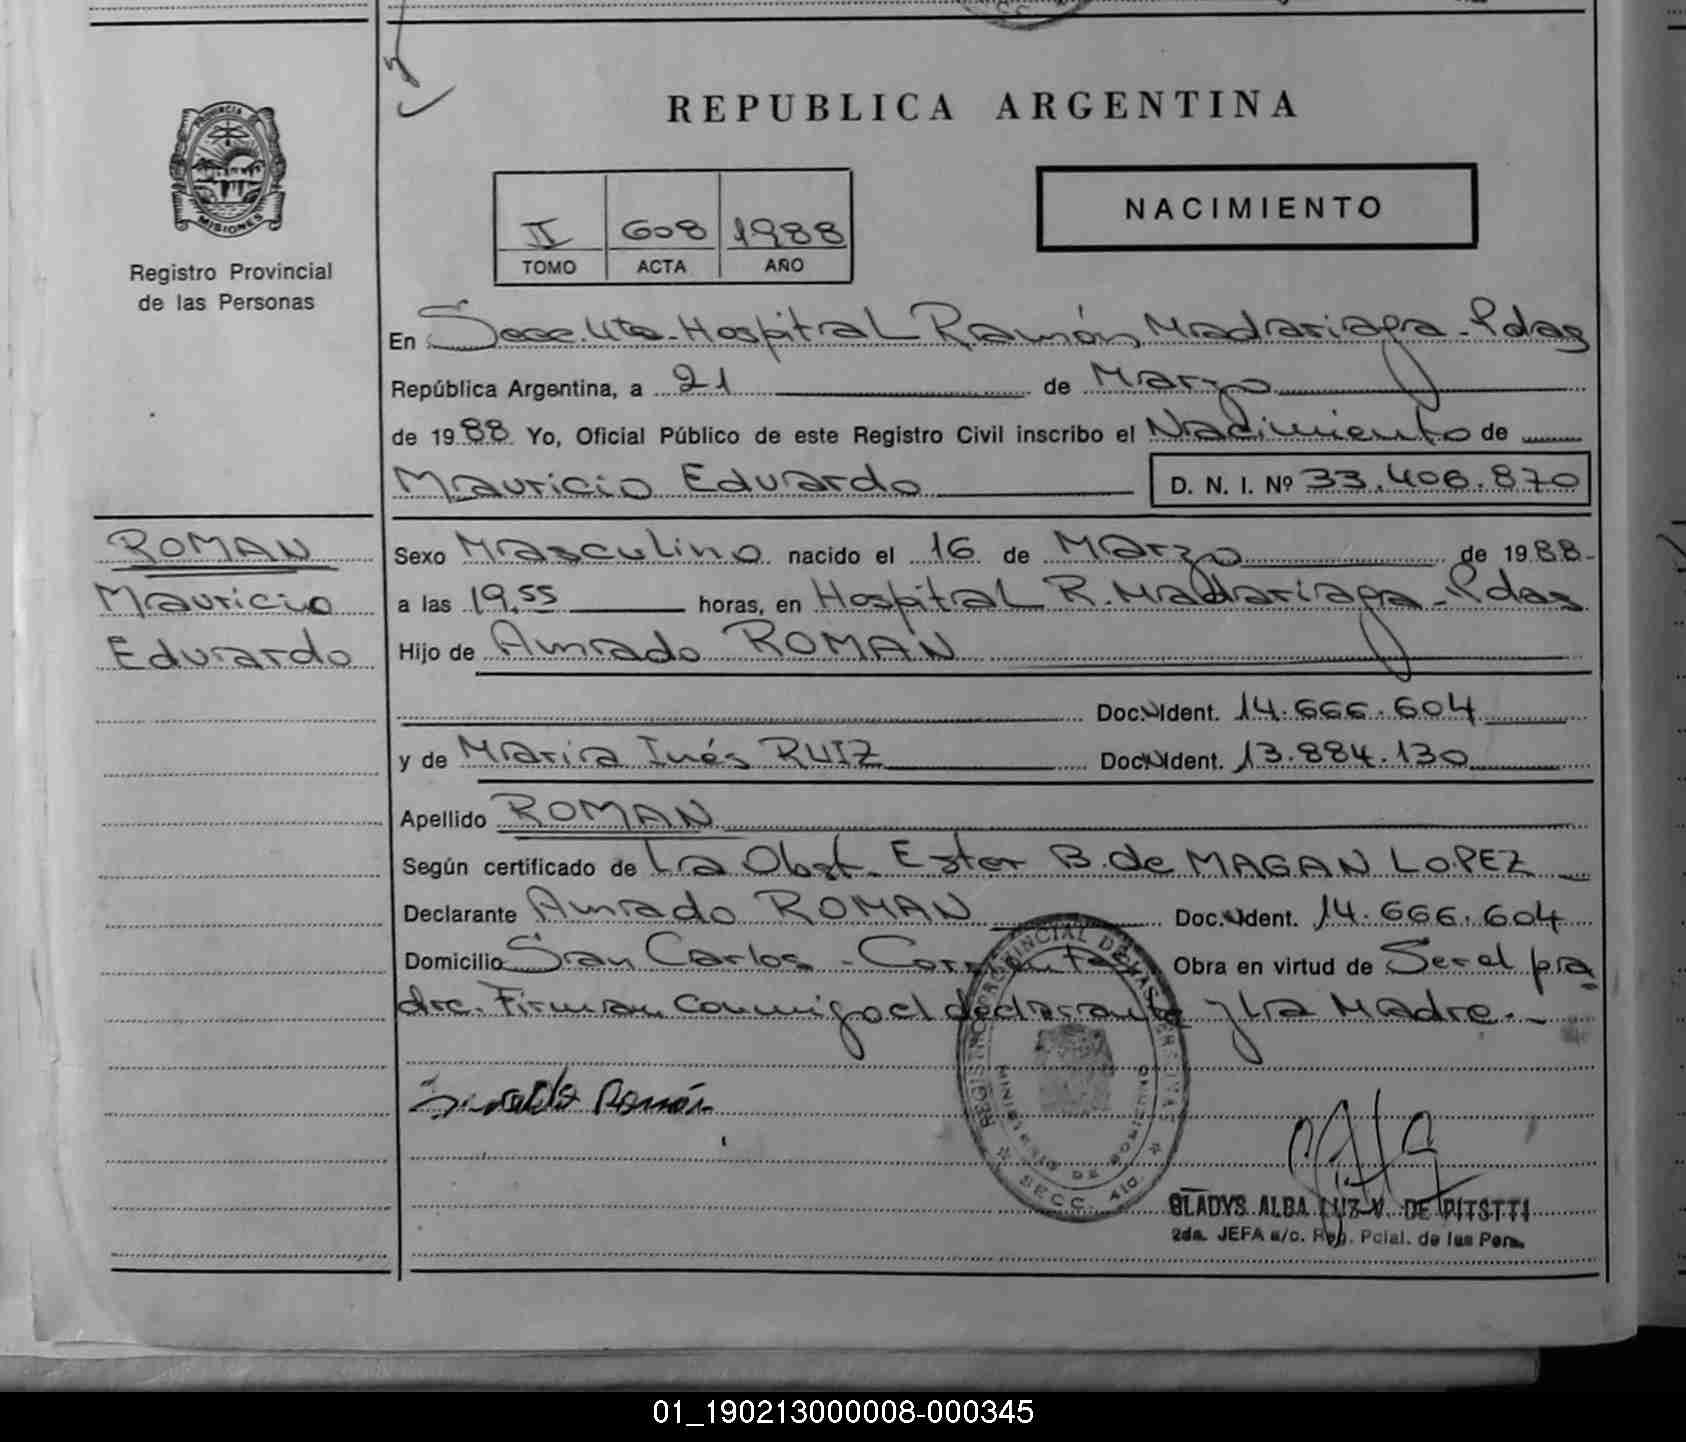 REPUBLICA ARGENTINA
PROVINCIA
MISIONES
Registro Provincial
de las Personas
II 608 1988
TOMO ACTA AÑO
NACIMIENTO
En Secc. 4ta. Hospital Ramón Madariaga - Pdas
República Argentina, a 21 de Marzo
de 1988 Yo, Oficial Público de este Registro Civil inscribo el Nacimiento de
Mauricio Eduardo D. N. I. Nº 33.408.870
ROMAN
Mauricio
Eduardo
Sexo Masculino nacido el 16 de Marzo de 1988-
a las 19,55 horas, en Hospital R. Madariaga - Pdas
Hijo de Amado ROMAN
Doc. Ident. 14.666.604
y de María Inés RUIZ Doc. Ident. 13.884.130
Apellido ROMAN
Según certificado de La Obst. Ester B. de MAGAN LOPEZ
Declarante Amado ROMAN Doc. Ident. 14.666.604
Domicilio San Carlos - Corrientes Obra en virtud de Ser el pa-
dre. Firman conmigo el declarante y la Madre.-
REGISTRO PROVINCIAL DE LAS PERSONAS
MINISTERIO DE GOBIERNO
SECC. 4ta.
Román
GLADYS ALBA LUZ V. DE
2da. JEFA a/c. Reg. Pcial. de las Pers.
01_190213000008-000345